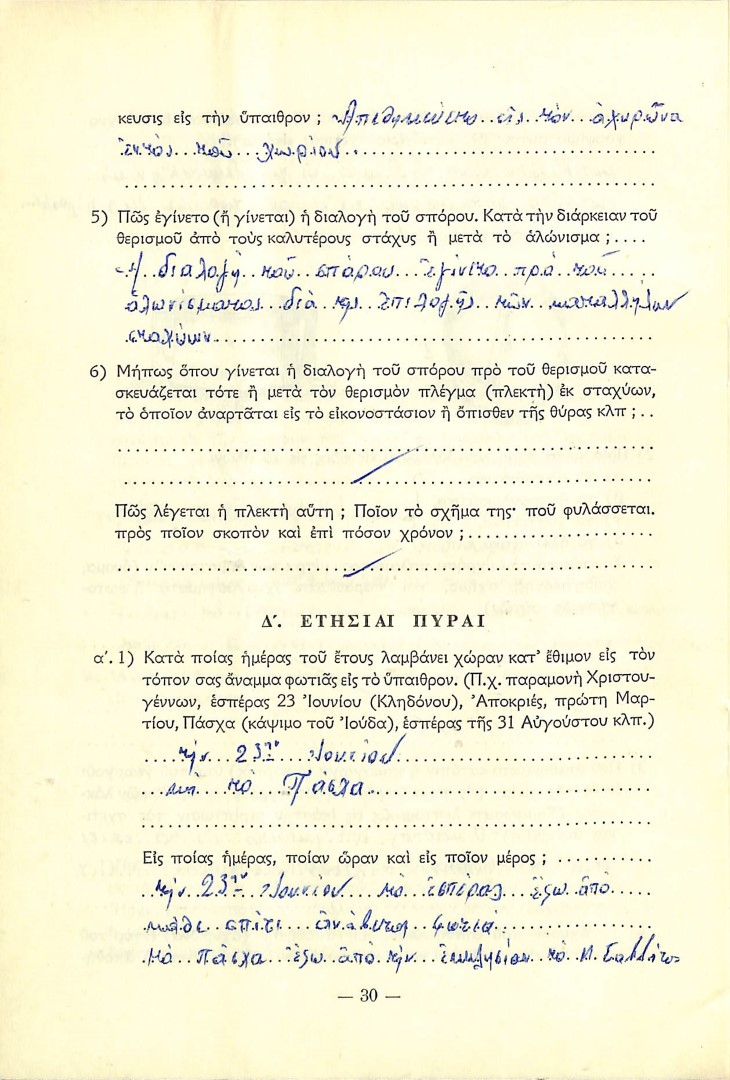 κευσις εἰς τὴν ὕπαιθρον ; Ἀπεθηκεύετο εἰς τὸν ἀχυρῶνα
ἐντὸς τοῦ χωρίου.
5) Πῶς ἐγίνετο (ἢ γίνεται) ἡ διαλογὴ τοῦ σπόρου. Κατὰ τὴν διάρκειαν τοῦ
θερισμοῦ ἀπὸ τοὺς καλυτέρους στάχυς ἢ μετὰ τὸ ἁλώνισμα ;....
Ἡ διαλογὴ τοῦ σπόρου ἐγίνετο πρὸ τοῦ
ἁλωνίσματος διὰ τῆς ἐπιλογῆς τῶν καταλλήλων
σταχύων.
6) Μήπως ὅπου γίνεται ἡ διαλογὴ τοῦ σπόρου πρὸ τοῦ θερισμοῦ κατα-
σκευάζεται τότε ἢ μετὰ τὸν θερισμὸν πλέγμα (πλεκτὴ) ἐκ σταχύων,
τὸ ὁποῖον ἀναρτᾶται εἰς τὸ εἰκονοστάσιον ἢ ὄπισθεν τῆς θύρας κλπ ; ..
Πῶς λέγεται ἡ πλεκτὴ αὕτη ; Ποῖον τὸ σχῆμα της· ποῦ φυλάσσεται.
πρὸς ποῖον σκοπὸν καὶ ἐπὶ πόσον χρόνον ;
Δ'. ΕΤΗΣΙΑΙ ΠΥΡΑΙ
α'. 1) Κατὰ ποίας ἡμέρας τοῦ ἔτους λαμβάνει χώραν κατ' ἔθιμον εἰς τὸν
τόπον σας ἄναμμα φωτιᾶς εἰς τὸ ὕπαιθρον. (Π.χ. παραμονὴ Χριστου-
γέννων, ἑσπέρας 23 Ἰουνίου (Κληδόνου), Ἀποκριές, πρώτη Μαρ-
τίου, Πάσχα (κάψιμο τοῦ Ἰούδα), ἑσπέρας τῆς 31 Αὐγούστου κλπ.)
τὴν 23ην Ἰουνίου
καὶ τὸ Πάσχα.
Εἰς ποίας ἡμέρας, ποίαν ὥραν καὶ εἰς ποῖον μέρος ;
τὴν 23ην Ἰουνίου τὸ ἑσπέρας ἔξω ἀπὸ
κάθε σπίτι ἀνάβεται φωτιά.
τὸ Πάσχα ἔξω ἀπὸ τὴν ἐκκλησίαν τὸ Μ. Σαββάτο
— 30 —